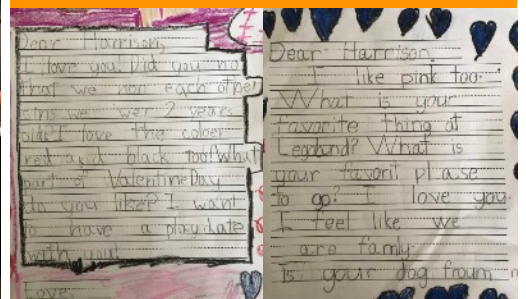 Dear Harrison,
I love you! Did you no
that we non each other
sins we wer 2 years
old? I love the coloer
red and black too! What
part of Valentine Day
do you like? I want
to have a playdate
with you!
Love,
Dear Harrison,
I like pink too.
What is your
favorite thing at
Legolund? What is
your favorit plase
to go? I love you.
I feel like we
are famly.
Is your dog froum